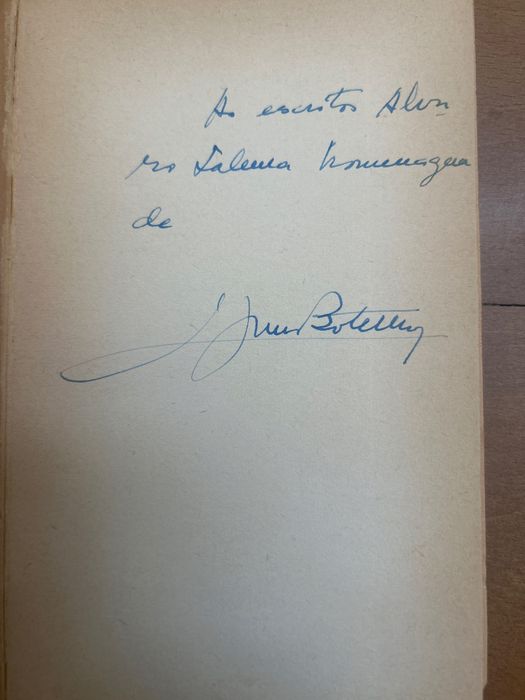 Ao escritor Alva-
ro Salema homenagem
de
Botelho